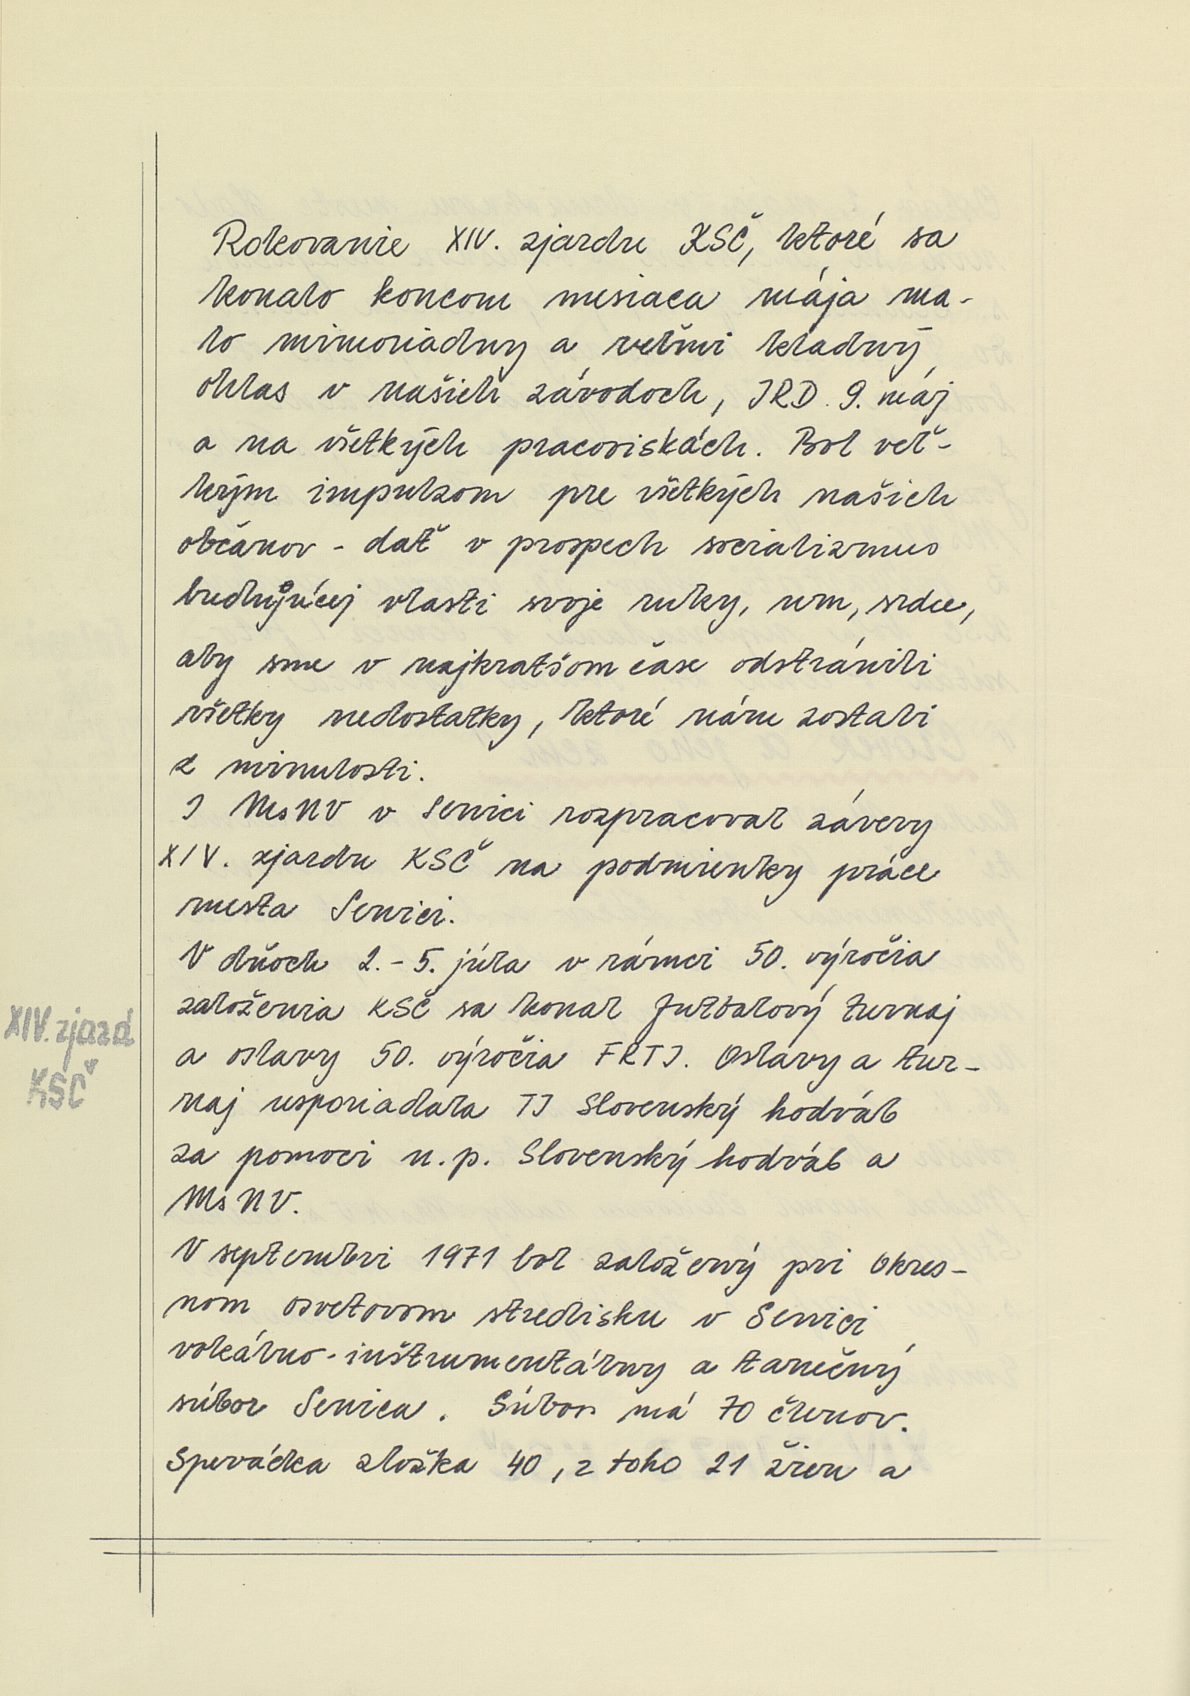 Rokovanie XIV. zjazdu KSČ, ktoré sa
konalo koncom mesiaca mája ma-
lo mimoriadny a veľmi kladný
ohlas v našich závodoch, JRD 9. máj
a na všetkých pracoviskách. Bol veľ-
kým impulzom pre všetkých našich
občanov - dať v prospech socializmus
budujúcej vlasti svoje ruky, um, srdce,
aby sme v najkratšom čase odstránili
všetky nedostatky, ktoré nám zostali
z minulosti.
I MsNV v Senici rozpracoval závery
XIV. zjazdu KSČ na podmienky práce
mesta Senici.
V dňoch 2. - 5. júla v rámci 50. výročia
založenia KSČ sa konal futbalový turnaj
a oslavy 50. výročia FRTJ. Oslavy a tur-
naj usporiadala TJ Slovenský hodváb
za pomoci n. p. Slovenský hodváb a
MsNV.
XIV. zjazd
KSČ
V septembri 1971 bol založený pri Okres-
nom osvetovom stredisku v Senici
vokálno - inštrumentálny a tanečný
súbor Senica. Súbor má 70 členov.
Spevácka zložka 40, z toho 21 žien a